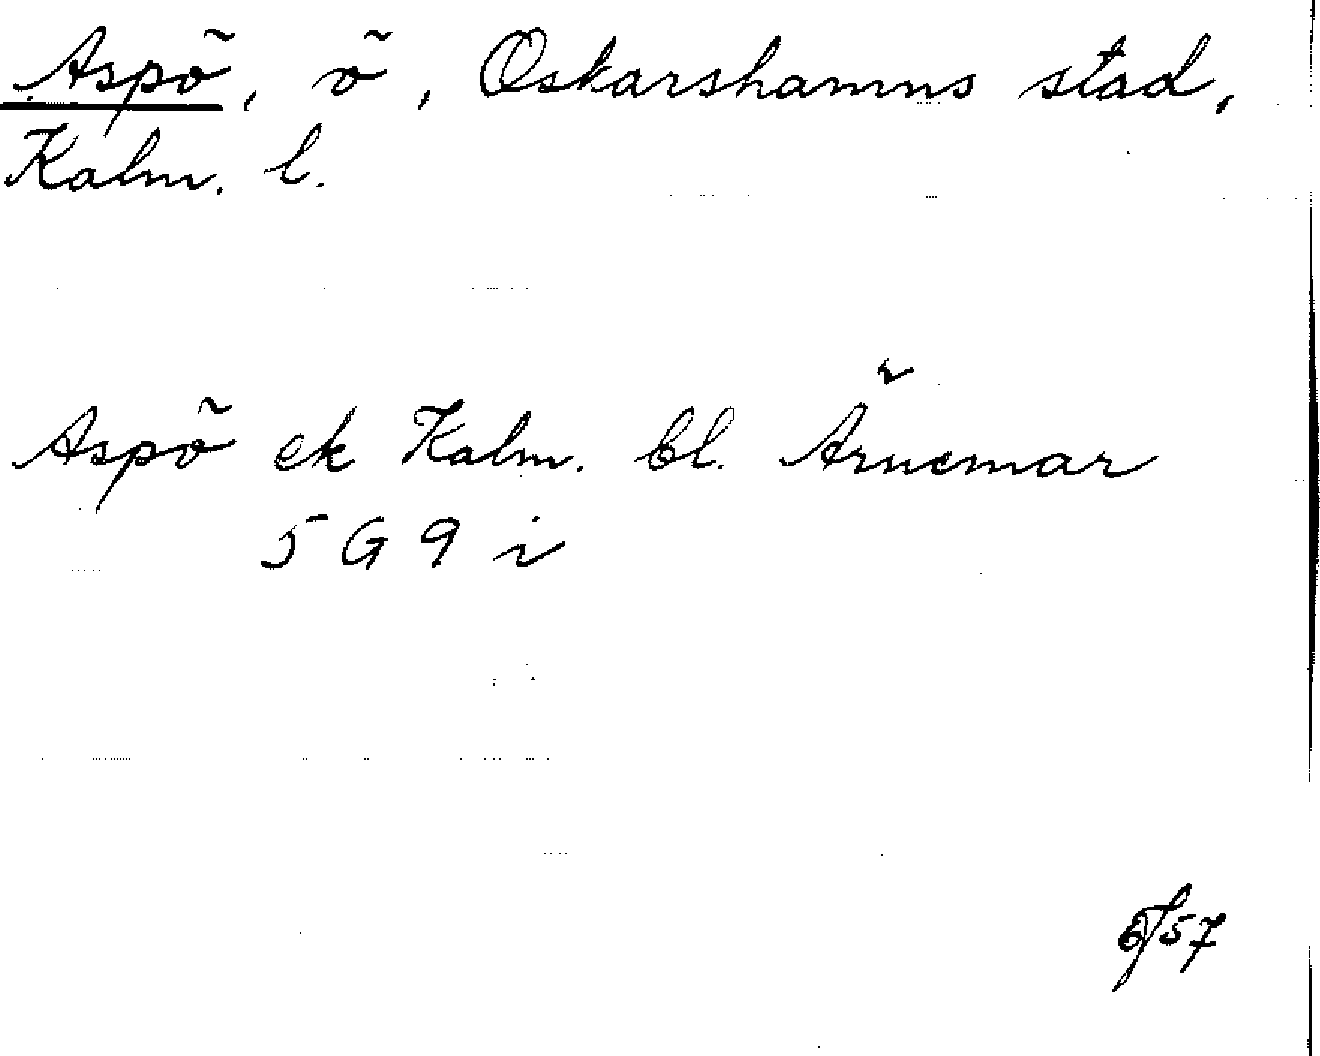 Aspö, ö, Oskarshamns stad,
Kalm. l.
Aspö ek Kalm. bl. Ärnemar
5 G 9 i
6/57